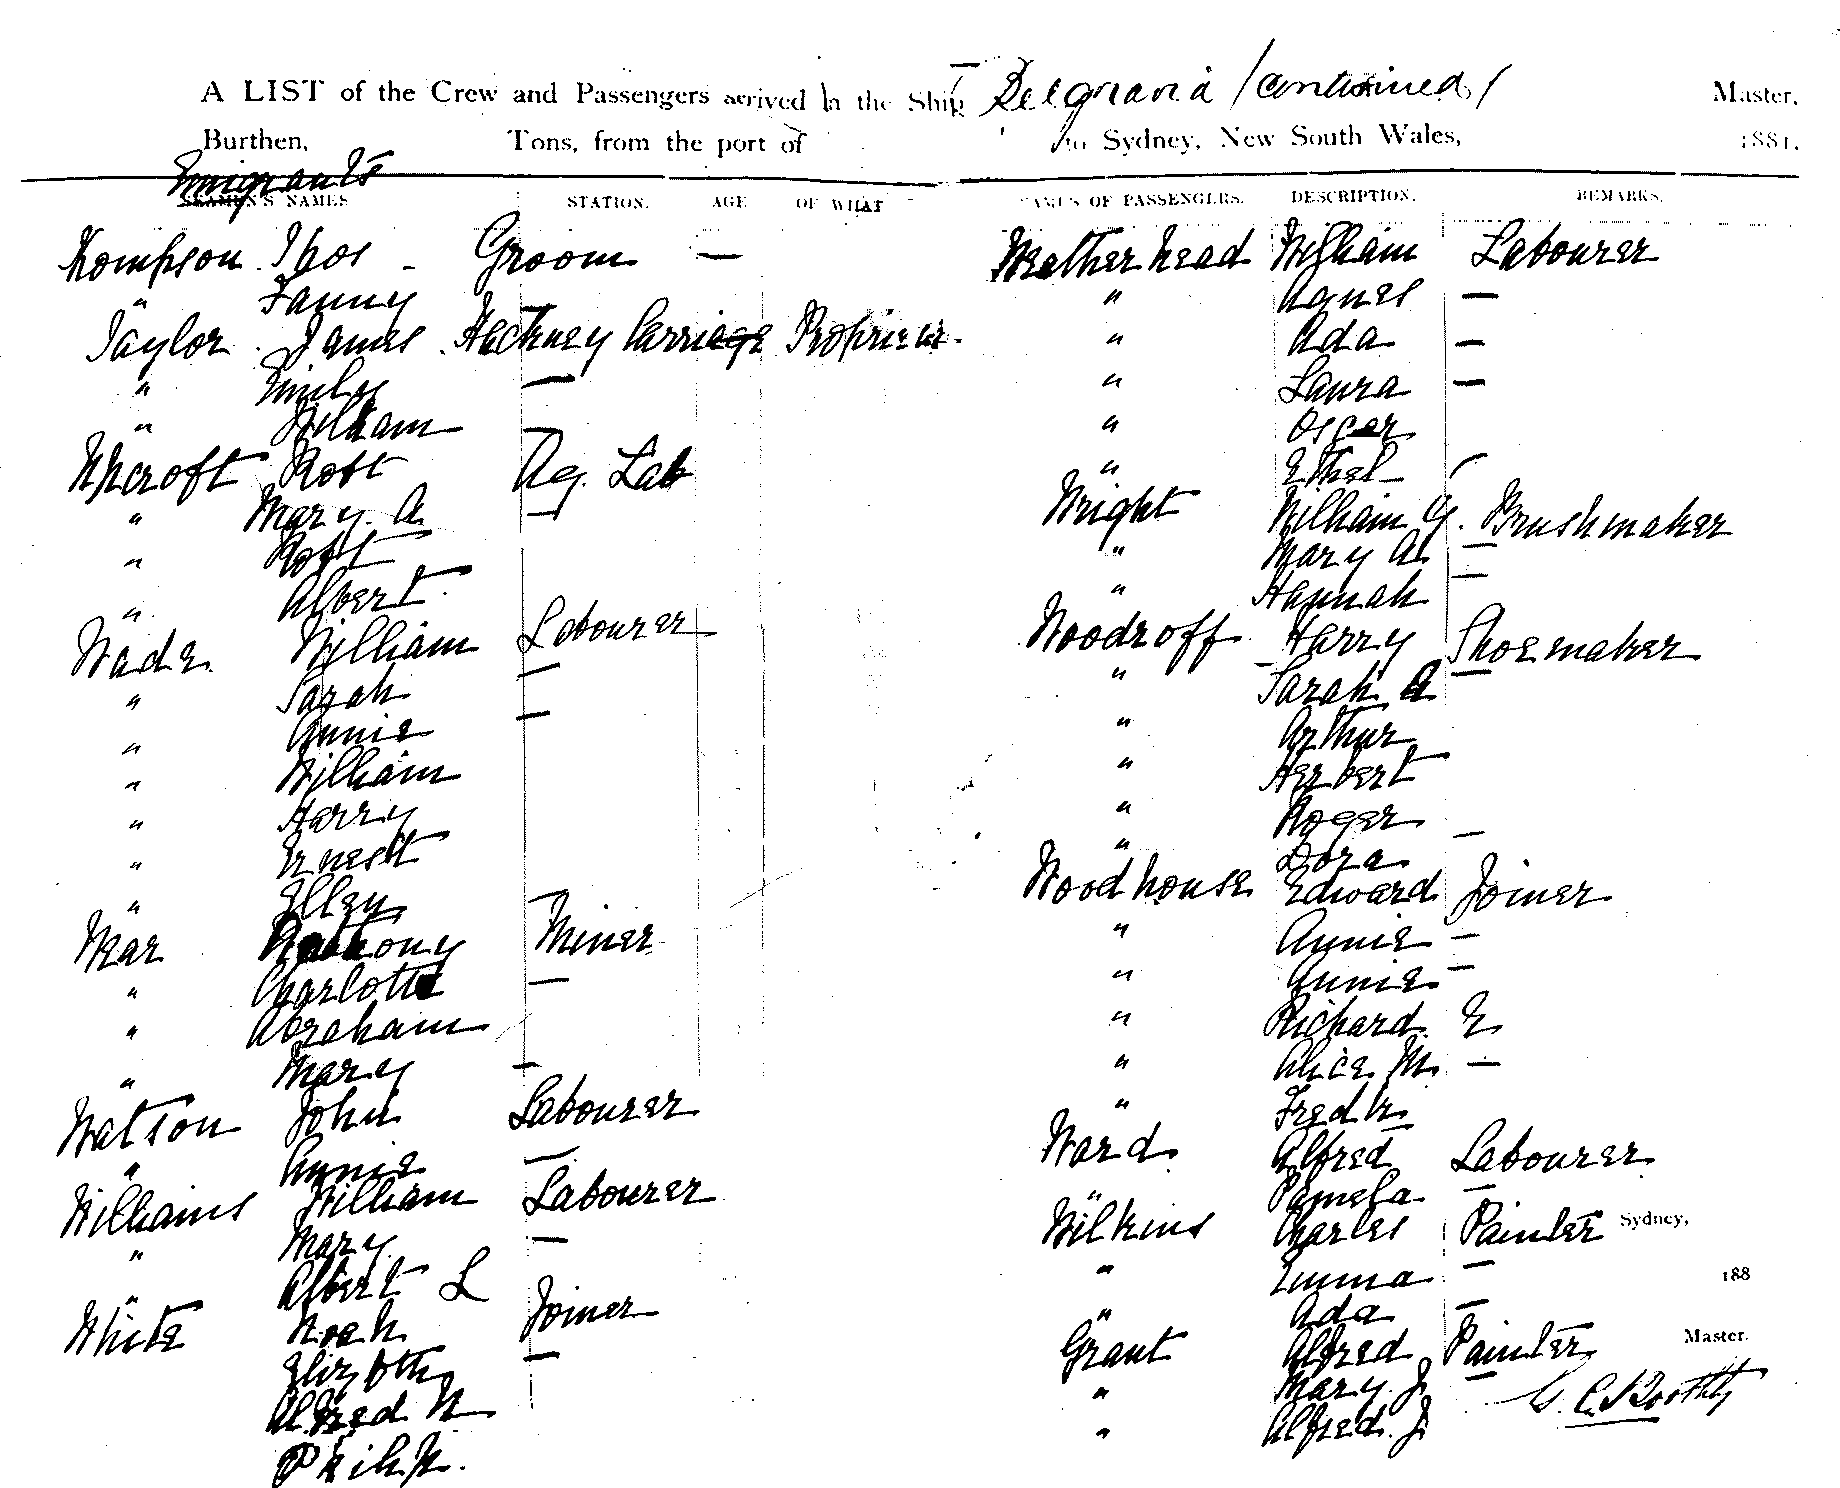 A LIST of the Crew and Passengers arrived in the Ship Belgravia (continued) Master,
Burthen, Tons, from the port of to Sydney, New South Wales, 1881.
Emigrants
SEAMEN'S NAMES STATION. AGE OF WHAT
Thompson Thos - Groom —
" Fanny
Taylor James Hackney Carriage Proprietor.
" Emily —
" William —
Upcroft Robt Ag. Lab
" Mary A —
" Robt
" Albert
Wade William Labourer
" Sarah —
" Annie —
" William
" Harry
" Ernest
" Ellen —
Wear Anthony Miner
" Charlotte —
" Abraham
" Mary —
Watson John Labourer
" Annie —
Williams William Labourer
" Mary —
" Albert L
White Noah Joiner
Elizbth —
Alfred N
NAMES OF PASSENGERS. DESCRIPTION. REMARKS.
Weatherhead William Labourer
" Agnes —
" Ada —
" Laura —
" Oscar
" Ethel —
Wright William G. Brushmaker
" Mary A. —
" Hannah —
Woodroff Harry Shoemaker
" Sarah A —
" Arthur
" Herbert
" Roger
" Dora —
Woodhouse Edward Joiner
" Annie —
" Annie —
" Richard E
" Alice M. —
" Fredk
Ward Alfred Labourer
" Pamela —
Wilkins Charles Painter
Sydney,
" Emma —
188
" Ada —
Grant Alfred Painter
Master.
" Mary J. —
" Alfred J.